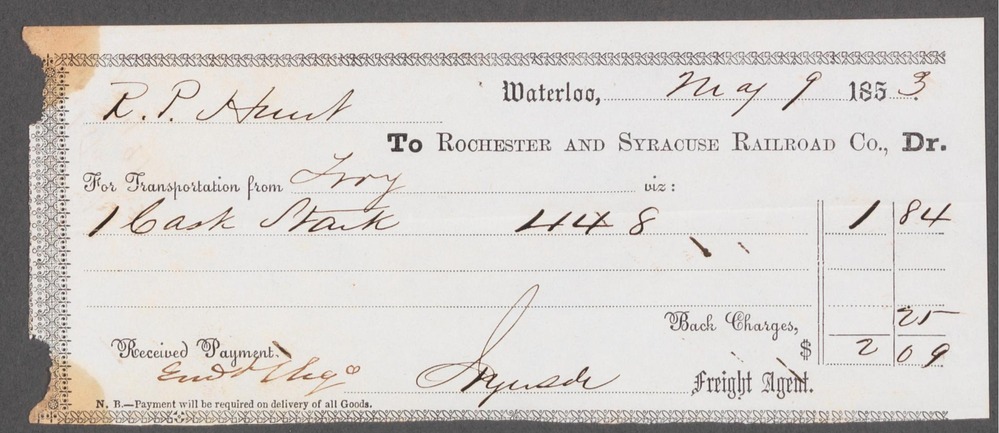 Waterloo, May 9 1853.
R. P. Hunt
To Rochester and Syracuse Railroad Co., Dr.
For Transportation from Troy viz:
1 Cask 448 1 84
Back Charges, 25
$ 2 09
Received Payment,
Freight Agent.
N. B.—Payment will be required on delivery of all Goods.